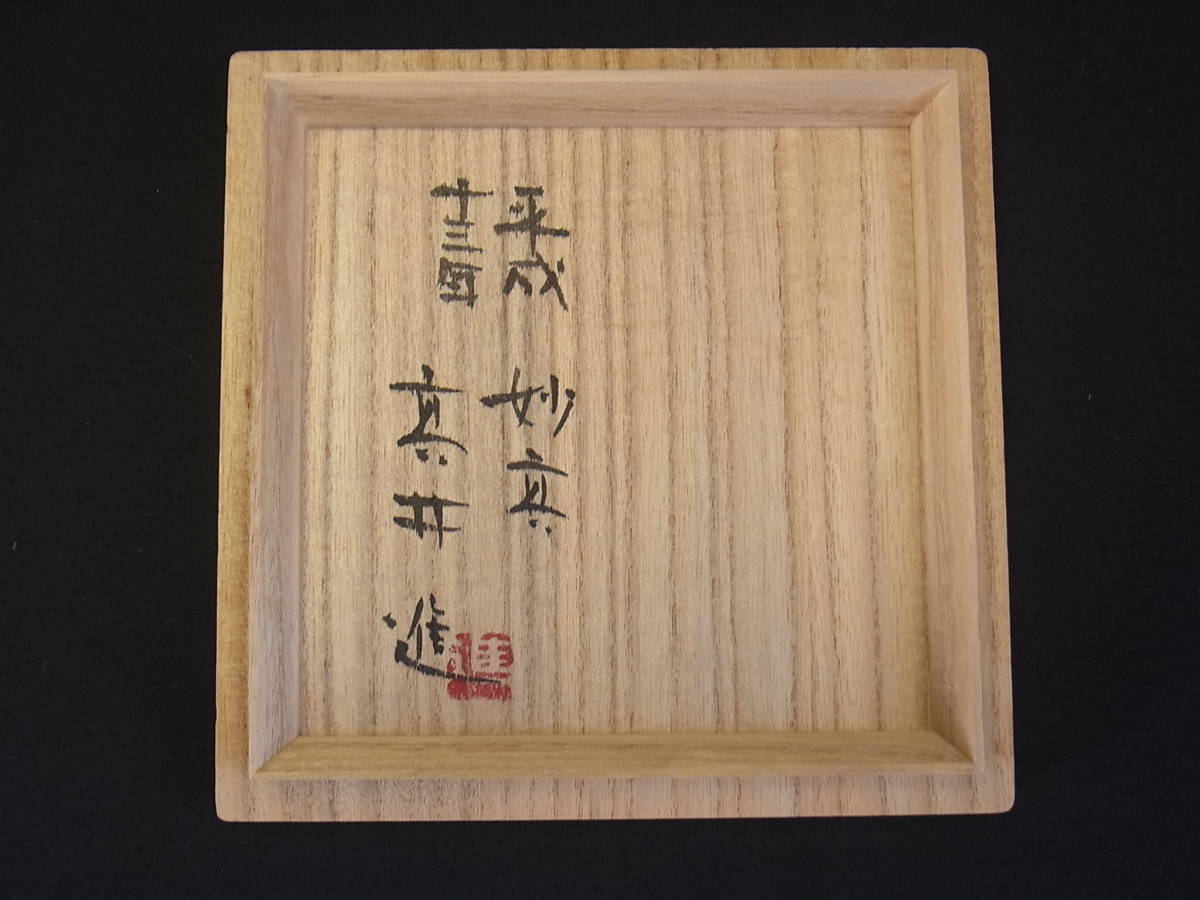 平成 妙高
十三年 高井 進
進